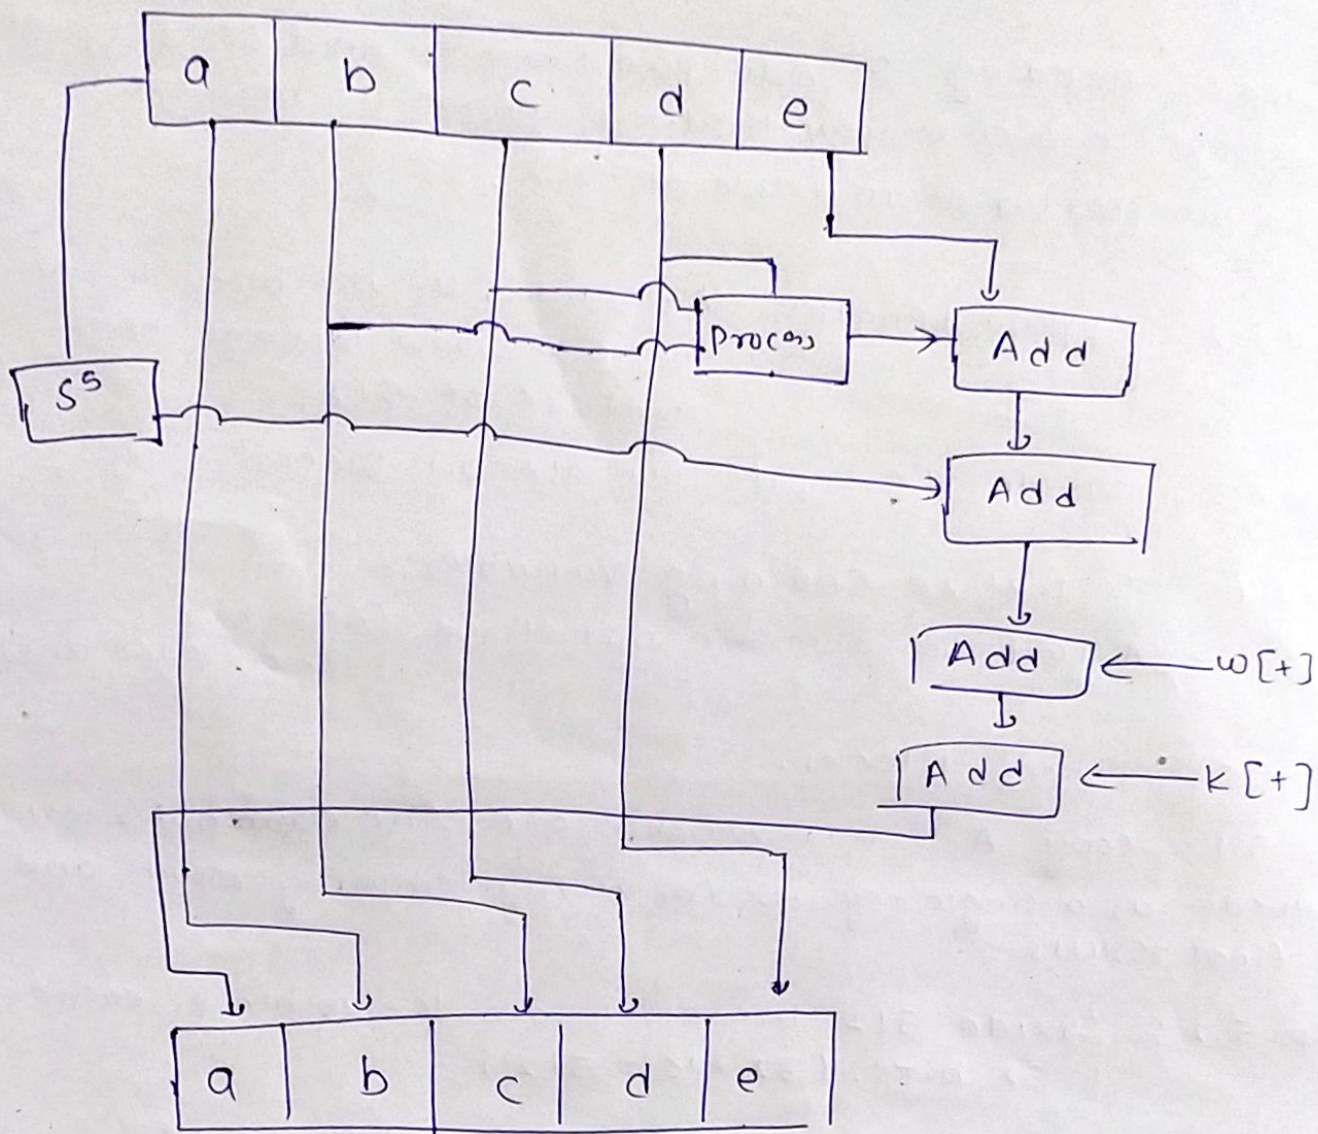 a b c d e
Process
Add
S⁵
Add
Add
w[t]
Add
K[t]
a b c d e